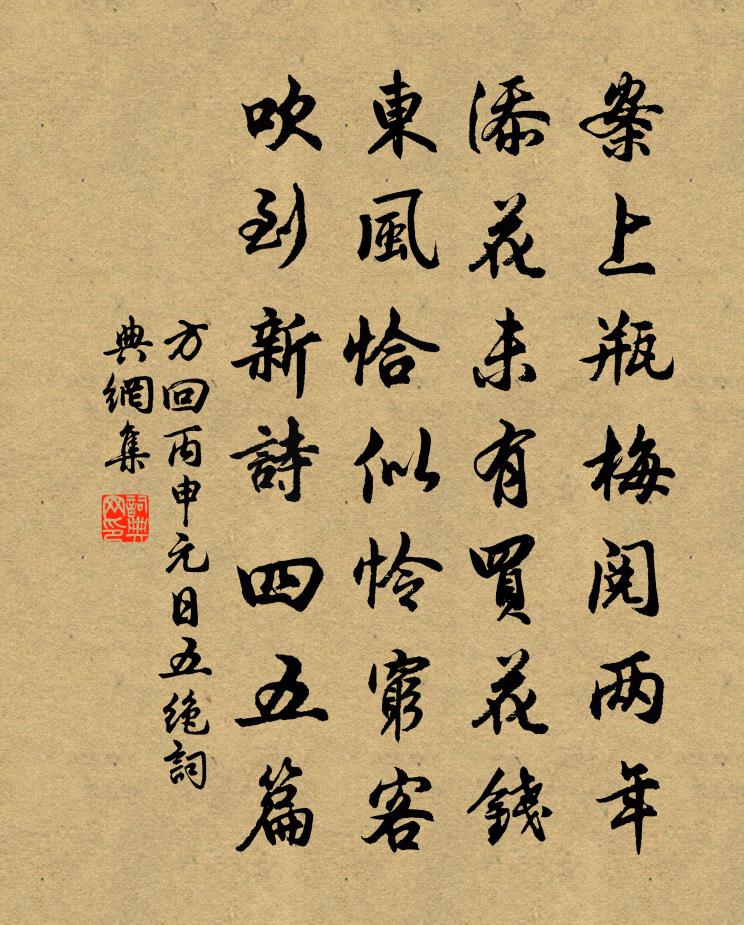 案上瓶梅閱两年
添花未有買花錢
東風恰似怜窮客
吹到新詩四五篇
方回丙申元日五绝詞
典網集
詞典
网印